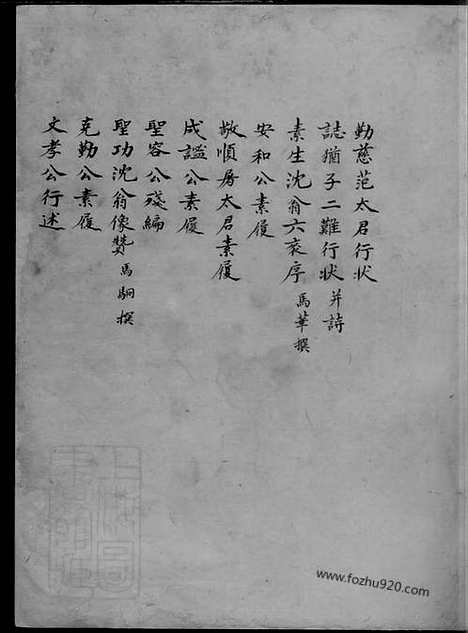 勤慈范太君行状
誌猶子二難行状 并詩
素生沈翁六袠序 馬華撰
安和公素履
敬順房太君素履
成謐公素履
聖容公殘編
聖功沈翁像贊 馬駉撰
克勤公素履
文孝公行述
www.fozhu920.com